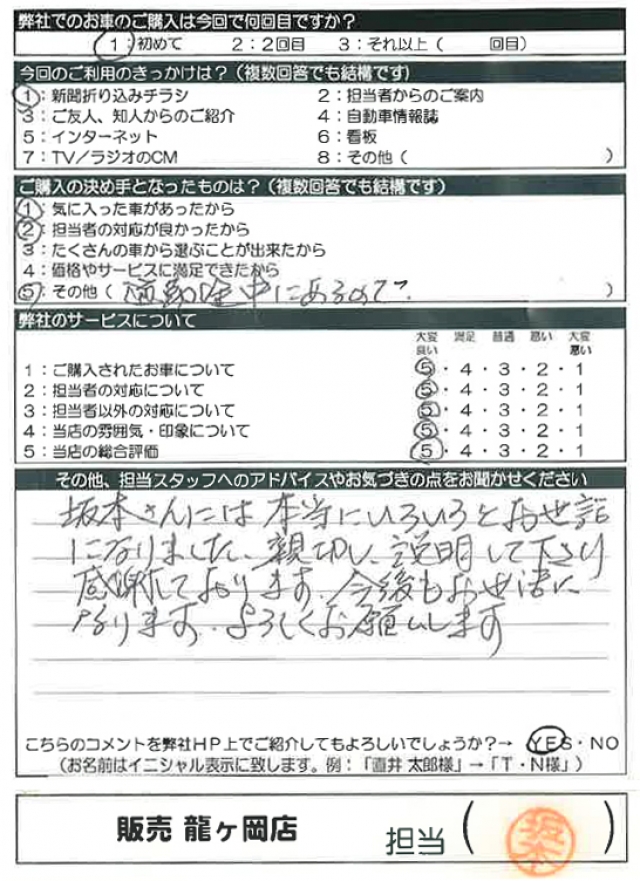 弊社でのお車のご購入は今回で何回目ですか？
1：初めて　2：2回目　3：それ以上（　　回目）
今回のご利用のきっかけは？（複数回答でも結構です）
1：新聞折り込みチラシ　2：担当者からのご案内
3：ご友人、知人からのご紹介　4：自動車情報誌
5：インターネット　6：看板
7：TV／ラジオのCM　8：その他（　　）
ご購入の決め手となったものは？（複数回答でも結構です）
1：気に入った車があったから
2：担当者の対応が良かったから
3：たくさんの車から選ぶことが出来たから
4：価格やサービスに満足できたから
5：その他（通勤途中にあるので。　）
弊社のサービスについて
大変良い　満足　普通　悪い　大変悪い
1：ご購入されたお車について　5・4・3・2・1
2：担当者の対応について　5・4・3・2・1
3：担当者以外の対応について　5・4・3・2・1
4：当店の雰囲気・印象について　5・4・3・2・1
5：当店の総合評価　5・4・3・2・1
その他、担当スタッフへのアドバイスやお気づきの点をお聞かせください
坂本さんには本当にいろいろとお世話
になりました、親切に、説明して下さり
感謝しております、今後もお世話に
なります、よろしくお願いします
こちらのコメントを弊社HP上でご紹介してもよろしいでしょうか？→ YES・NO
（お名前はイニシャル表示に致します。例：「直井 太郎様」→「T・N様」）
販売 龍ヶ岡店　担当（坂本）